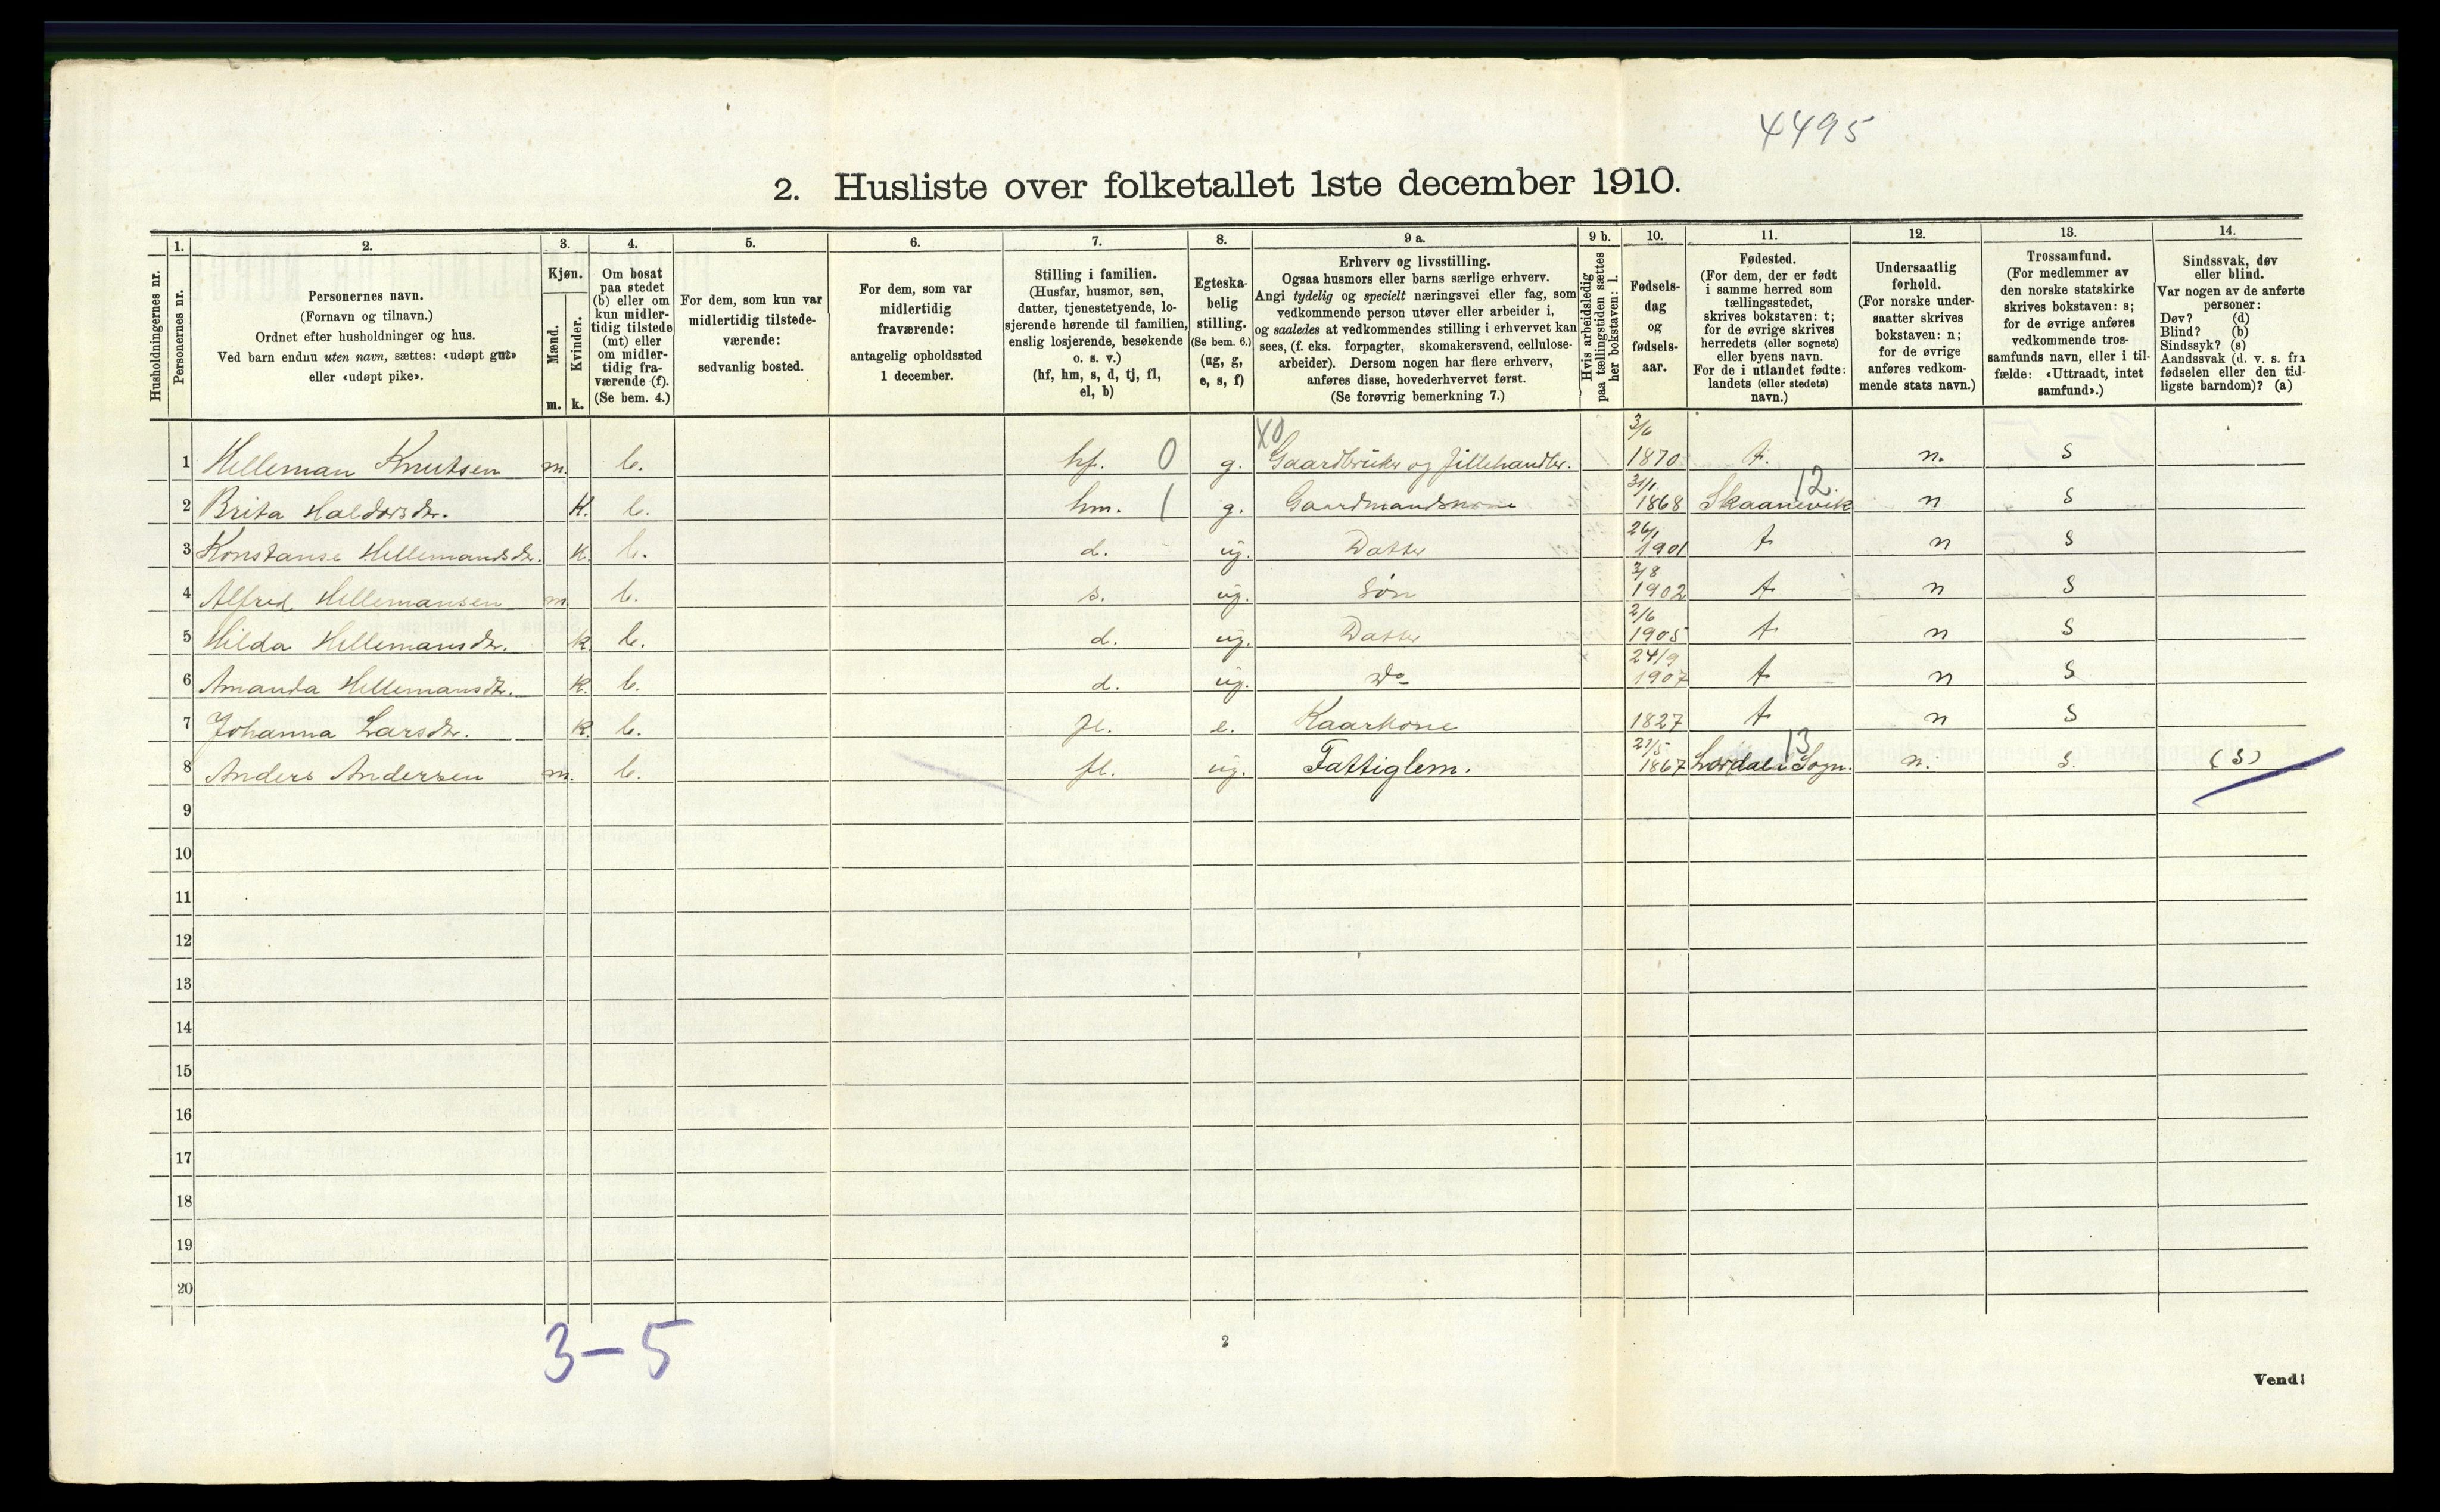 4495
2. Husliste over folketallet 1ste december 1910.
Husholdningernes nr.
1.
Personernes nr.
2.
Personernes navn.
(Fornavn og tilnavn.)
Ordnet efter husholdninger og hus.
Ved barn endnu uten navn, sættes: «udøpt gut»
eller «udøpt pike».
3.
Kjøn.
Mænd.
Kvinder.
m. k.
4.
Om bosat
paa stedet
(b) eller om
kun midler-
tidig tilstede
(mt) eller
om midler-
tidig fra-
værende (f).
(Se bem. 4.)
5.
For dem, som kun var
midlertidig tilstede-
værende:
sedvanlig bosted.
6.
For dem, som var
midlertidig
fraværende:
antagelig opholdssted
1 december.
7.
Stilling i familien.
(Husfar, husmor, søn,
datter, tjenestetyende, lo-
sjerende hørende til familien,
enslig losjerende, besøkende
o. s. v.)
(hf, hm, s, d, tj, fl,
el, b)
8.
Egteska-
belig
stilling.
(Se bem. 6.)
(ug, g,
e, s, f)
9 a.
Erhverv og livsstilling.
Ogsaa husmors eller barns særlige erhverv.
Angi tydelig og specielt næringsvei eller fag, som
vedkommende person utøver eller arbeider i,
og saaledes at vedkommendes stilling i erhvervet kan
sees, (f. eks. forpagter, skomakersvend, cellulose-
arbeider). Dersom nogen har flere erhverv,
anføres disse, hovederhvervet først.
(Se forøvrig bemerkning 7.)
9 b.
Hvis arbeidsledig
paa tællingstiden sættes
her bokstaven: l.
10.
Fødsels-
dag
og
fødsels-
aar.
11.
Fødested.
(For dem, der er født
i samme herred som
tællingsstedet,
skrives bokstaven: t;
for de øvrige skrives
herredets (eller sognets)
eller byens navn.
For de i utlandet fødte:
landets (eller stedets)
navn.)
12.
Undersaatlig
forhold.
(For norske under-
saatter skrives
bokstaven: n;
for de øvrige
anføres vedkom-
mende stats navn.)
13.
Trossamfund.
(For medlemmer av
den norske statskirke
skrives bokstaven: s;
for de øvrige anføres
vedkommende tros-
samfunds navn, eller i til-
fælde: «Uttraadt, intet
samfund».)
14.
Sindssvak, døv
eller blind.
Var nogen av de anførte
personer:
Døv? (d)
Blind? (b)
Sindssyk? (s)
Aandssvak (d. v. s. fra
fødselen eller den tid-
ligste barndom)? (a)
1 Helleman Knutsen m. b. hf. 0 g. X0 Gaardbruker og Sillehandler. 3/6 1870 t. n. s
2 Brita Haldorsdr. k. b. hm. 1 g. Gaardmandskone 31/1 1868 Skaanevik 12. n s
3 Konstanse Hellemandsdr. k. b. d. ug. Datter 26/1 1901 t n s
4 Alfred Hellemansen m b. s. ug. Søn 3/8 1902 t n s
5 Hilda Hellemansdr. k b. d. ug. Datter 2/6 1905 t n s
6 Amanda Hellemansdr. k. b. d. ug. Do 24/9 1907 t n s
7 Johanna Larsdr. k. b. fl. e. Kaarkone 1827 t n s
8 Anders Andersen m. b. fl. ug. Fattiglem. 21/5 1867 Lærdal i Sogn. 13 n. s. (S)
9
10
11
12
13
14
15
16
17
18
19
20
3-5
2
Vend!